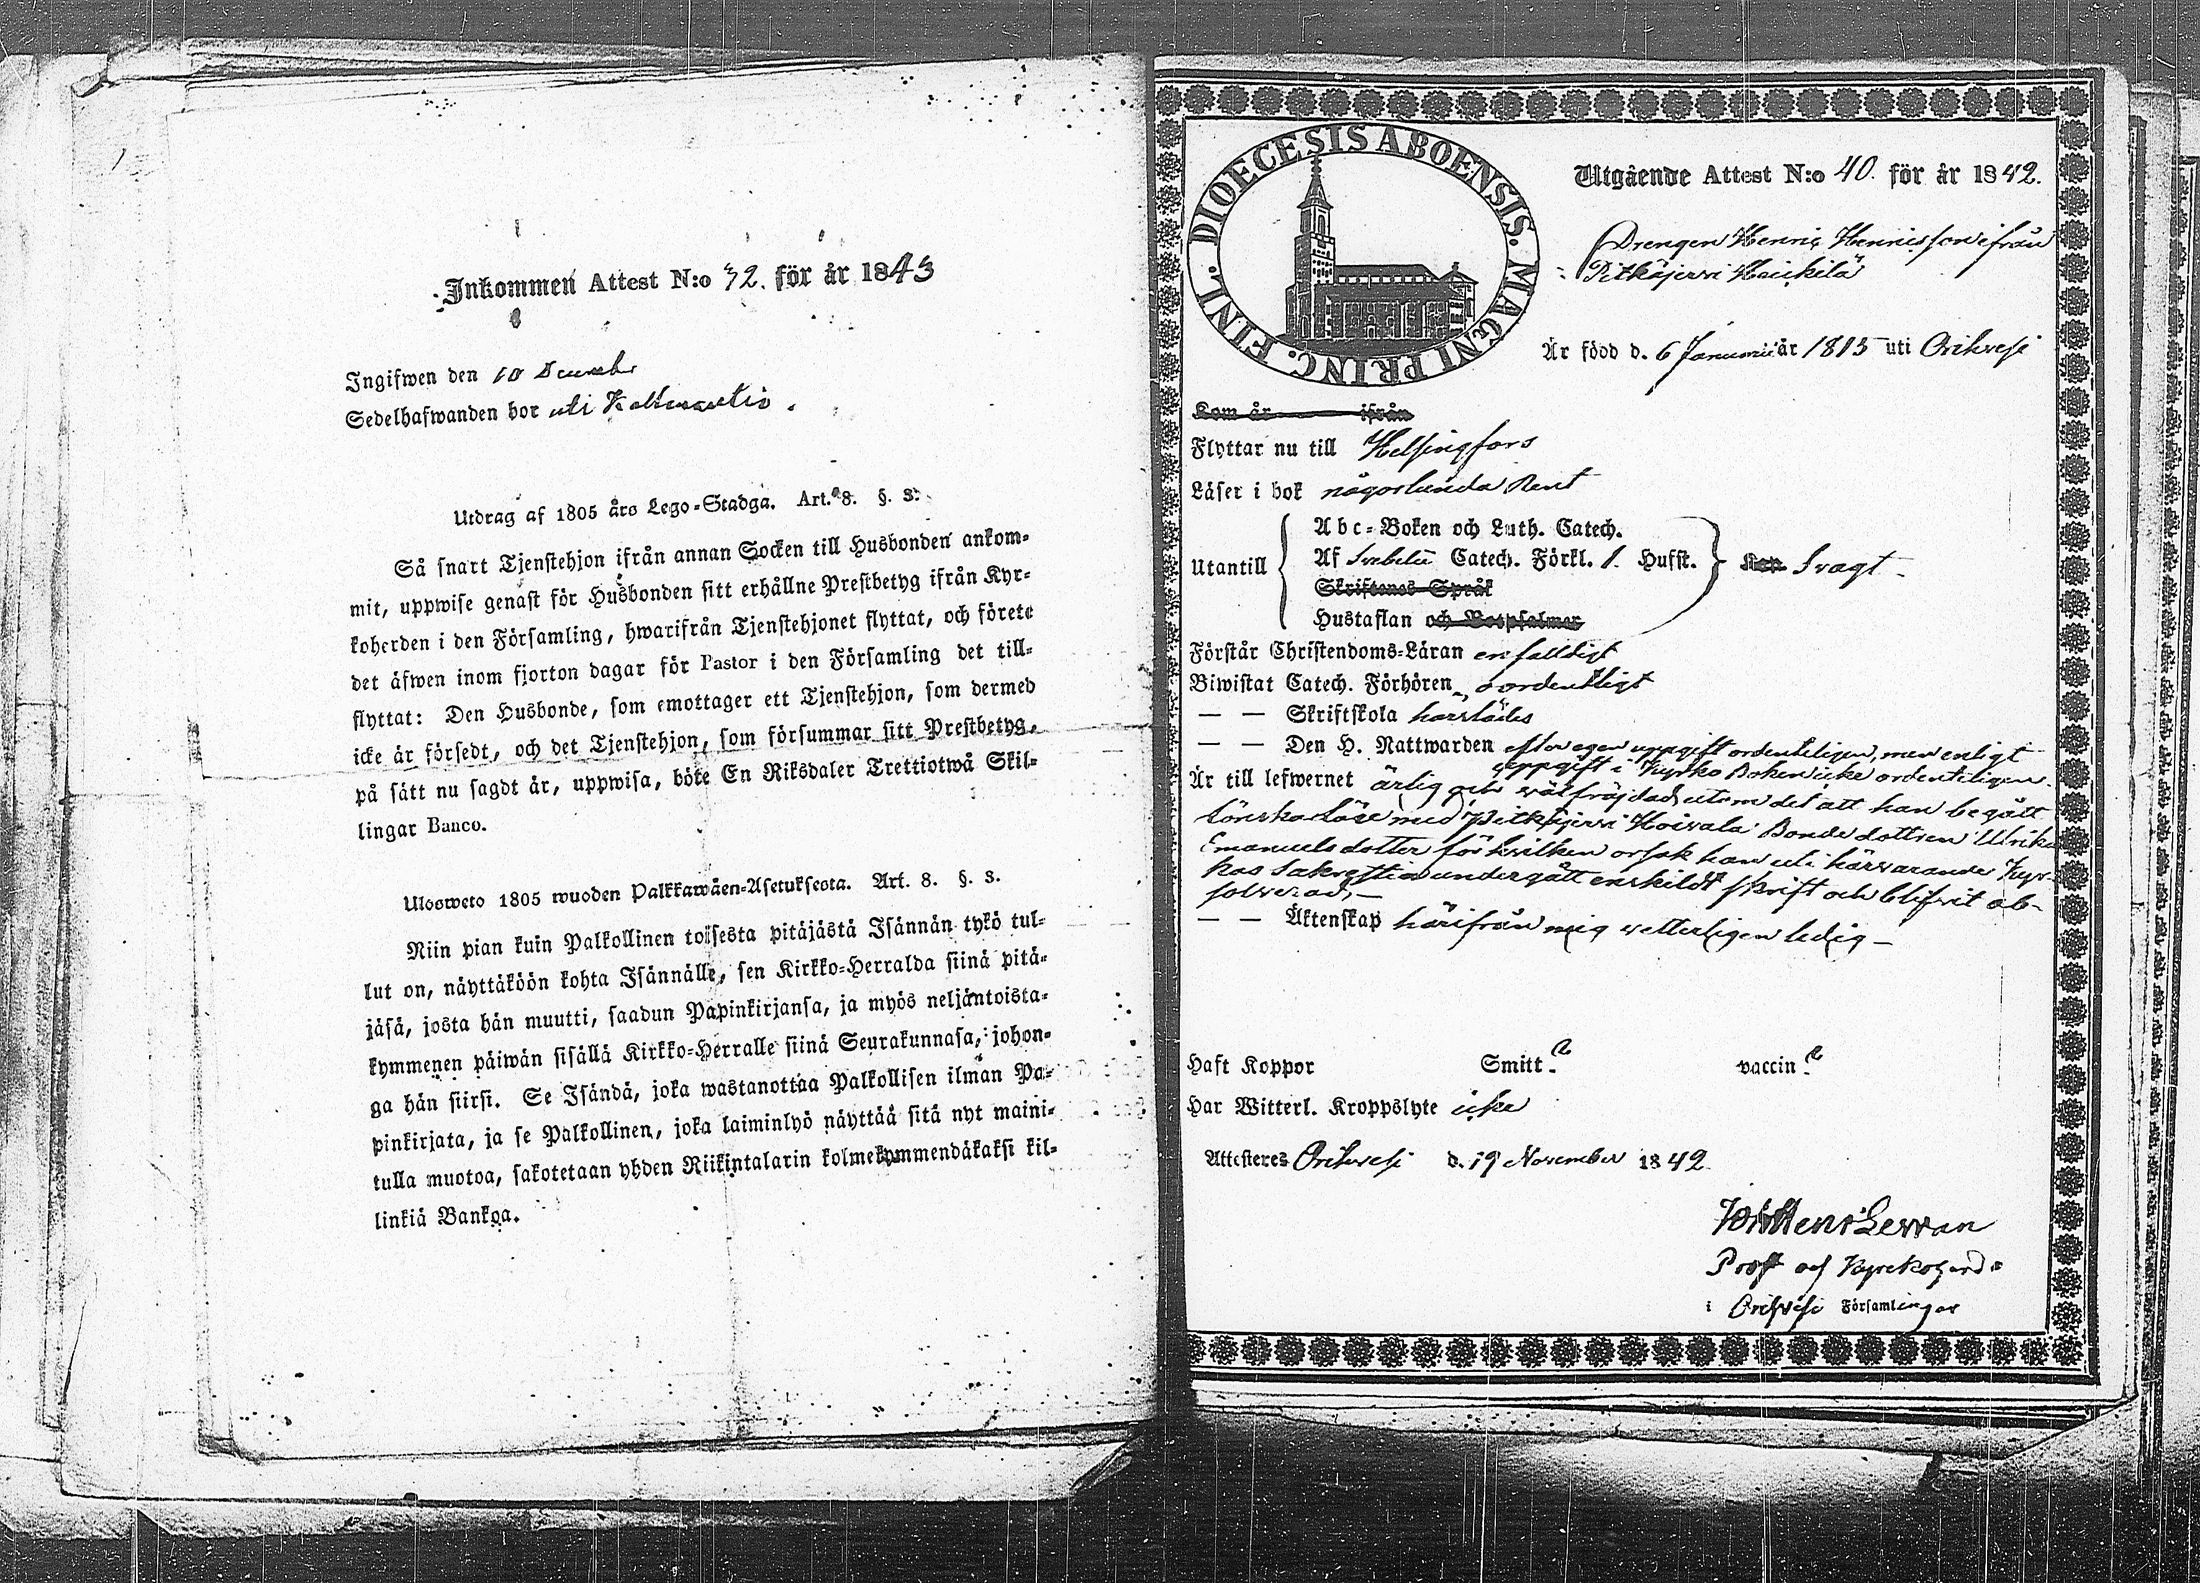 Inkommen Attest N:o 32. för år 1843
Ingifwen den 10 Decemb:
Sedelhafwanden bor uti
Utdrag af 1805 års Lego-Stadga. Art. 8. §. 3.
Så snart Tjenstehjon ifrån annan Socken till Husbonden ankom-
mit, uppwise genast för Husbonden sitt erhållne Prestbetyg ifrån Kyr-
koherden i den Församling, hwarifrån Tjenstehjonet flyttat, och förete
det äfwen inom fjorton dagar för Pastor i den Församling det till-
flyttat: Den Husbonde, som emottager ett Tjenstehjon, som dermed
icke är försedt, och det Tjenstehjon, som försummar sitt Prestbetyg,
på sätt nu sagdt är, uppwisa, böte En Riksdaler Trettiotwå Skil-
lingar Banco.
Ulosweto 1805 wuoden Palkkawäen-Asetuksesta. Art. 8. §. 3.
Niin pian kuin Palkollinen toisesta pitäjästä Isännän tykö tul-
lut on, näyttäköön kohta Isännälle, sen Kirkko-Herralda siinä pitä-
jäsä, josta hän muutti, saadun Papinkirjansa, ja myös neljäntoista-
kymmenen päiwän sisällä Kirkko-Herralle siinä Seurakunnasa, johon-
ga hän siirsi. Se Isändä, joka wastanottaa Palkollisen ilman Pa-
pinkirjata, ja se Palkollinen, joka laiminlyö näyttää sitä nyt maini-
tulla muotoa, sakotetaan yhden Riikintalarin kolmekymmendäkaksi kil-
linkiä Bankoa.
DIOECESIS ABOENSIS. MAGNI PRINC. FINL.
Utgående Attest N:o 40. för år 1842.
Drengen Henric Henricsson ifrån
Pitkäjervi Heickilä
Är född d. 6 Januarii år 1815 uti Orihvesi
Kom år ifrån
Flyttar nu till Helsingfors
Läser i bok någorlunda Rent
Abc-Boken och Luth. Catech.
Utantill Af Svebelii Catech. Förkl. 1. Hufst. Kan Svagt
Skriftenes Språk
Hustaflan och Botpsalmer
Förstår Christendoms-Läran enfalldigt
Biwistat Catech. Förhören oordentligt
— — Skriftskola härstädes
— — Den H. Nattwarden efter egen uppgift ordenteligen, men enligt
uppgift i Kyrko Boken icke ordenteligen.
Är till lefwernet ärlig och välfräjdad utom det att han begått
lönskaläge med Pitkäjervi Hoivala Bonde dottren Ulrika
Emanuelsdotter för hvilken orsak han uti härvarande Kyr-
kas Sakrestia undergått enskildt skrift och blifvit ab-
solverad,—
— — Äktenskap härifrån mig vetterligen ledig—
Haft Koppor Smitt vaccin
Har Witterl. Kroppslyte icke
Attesteres Orihvesi d. 19 November 1842
Prost och Kyrckoherde
i Orihvesi Församlingar